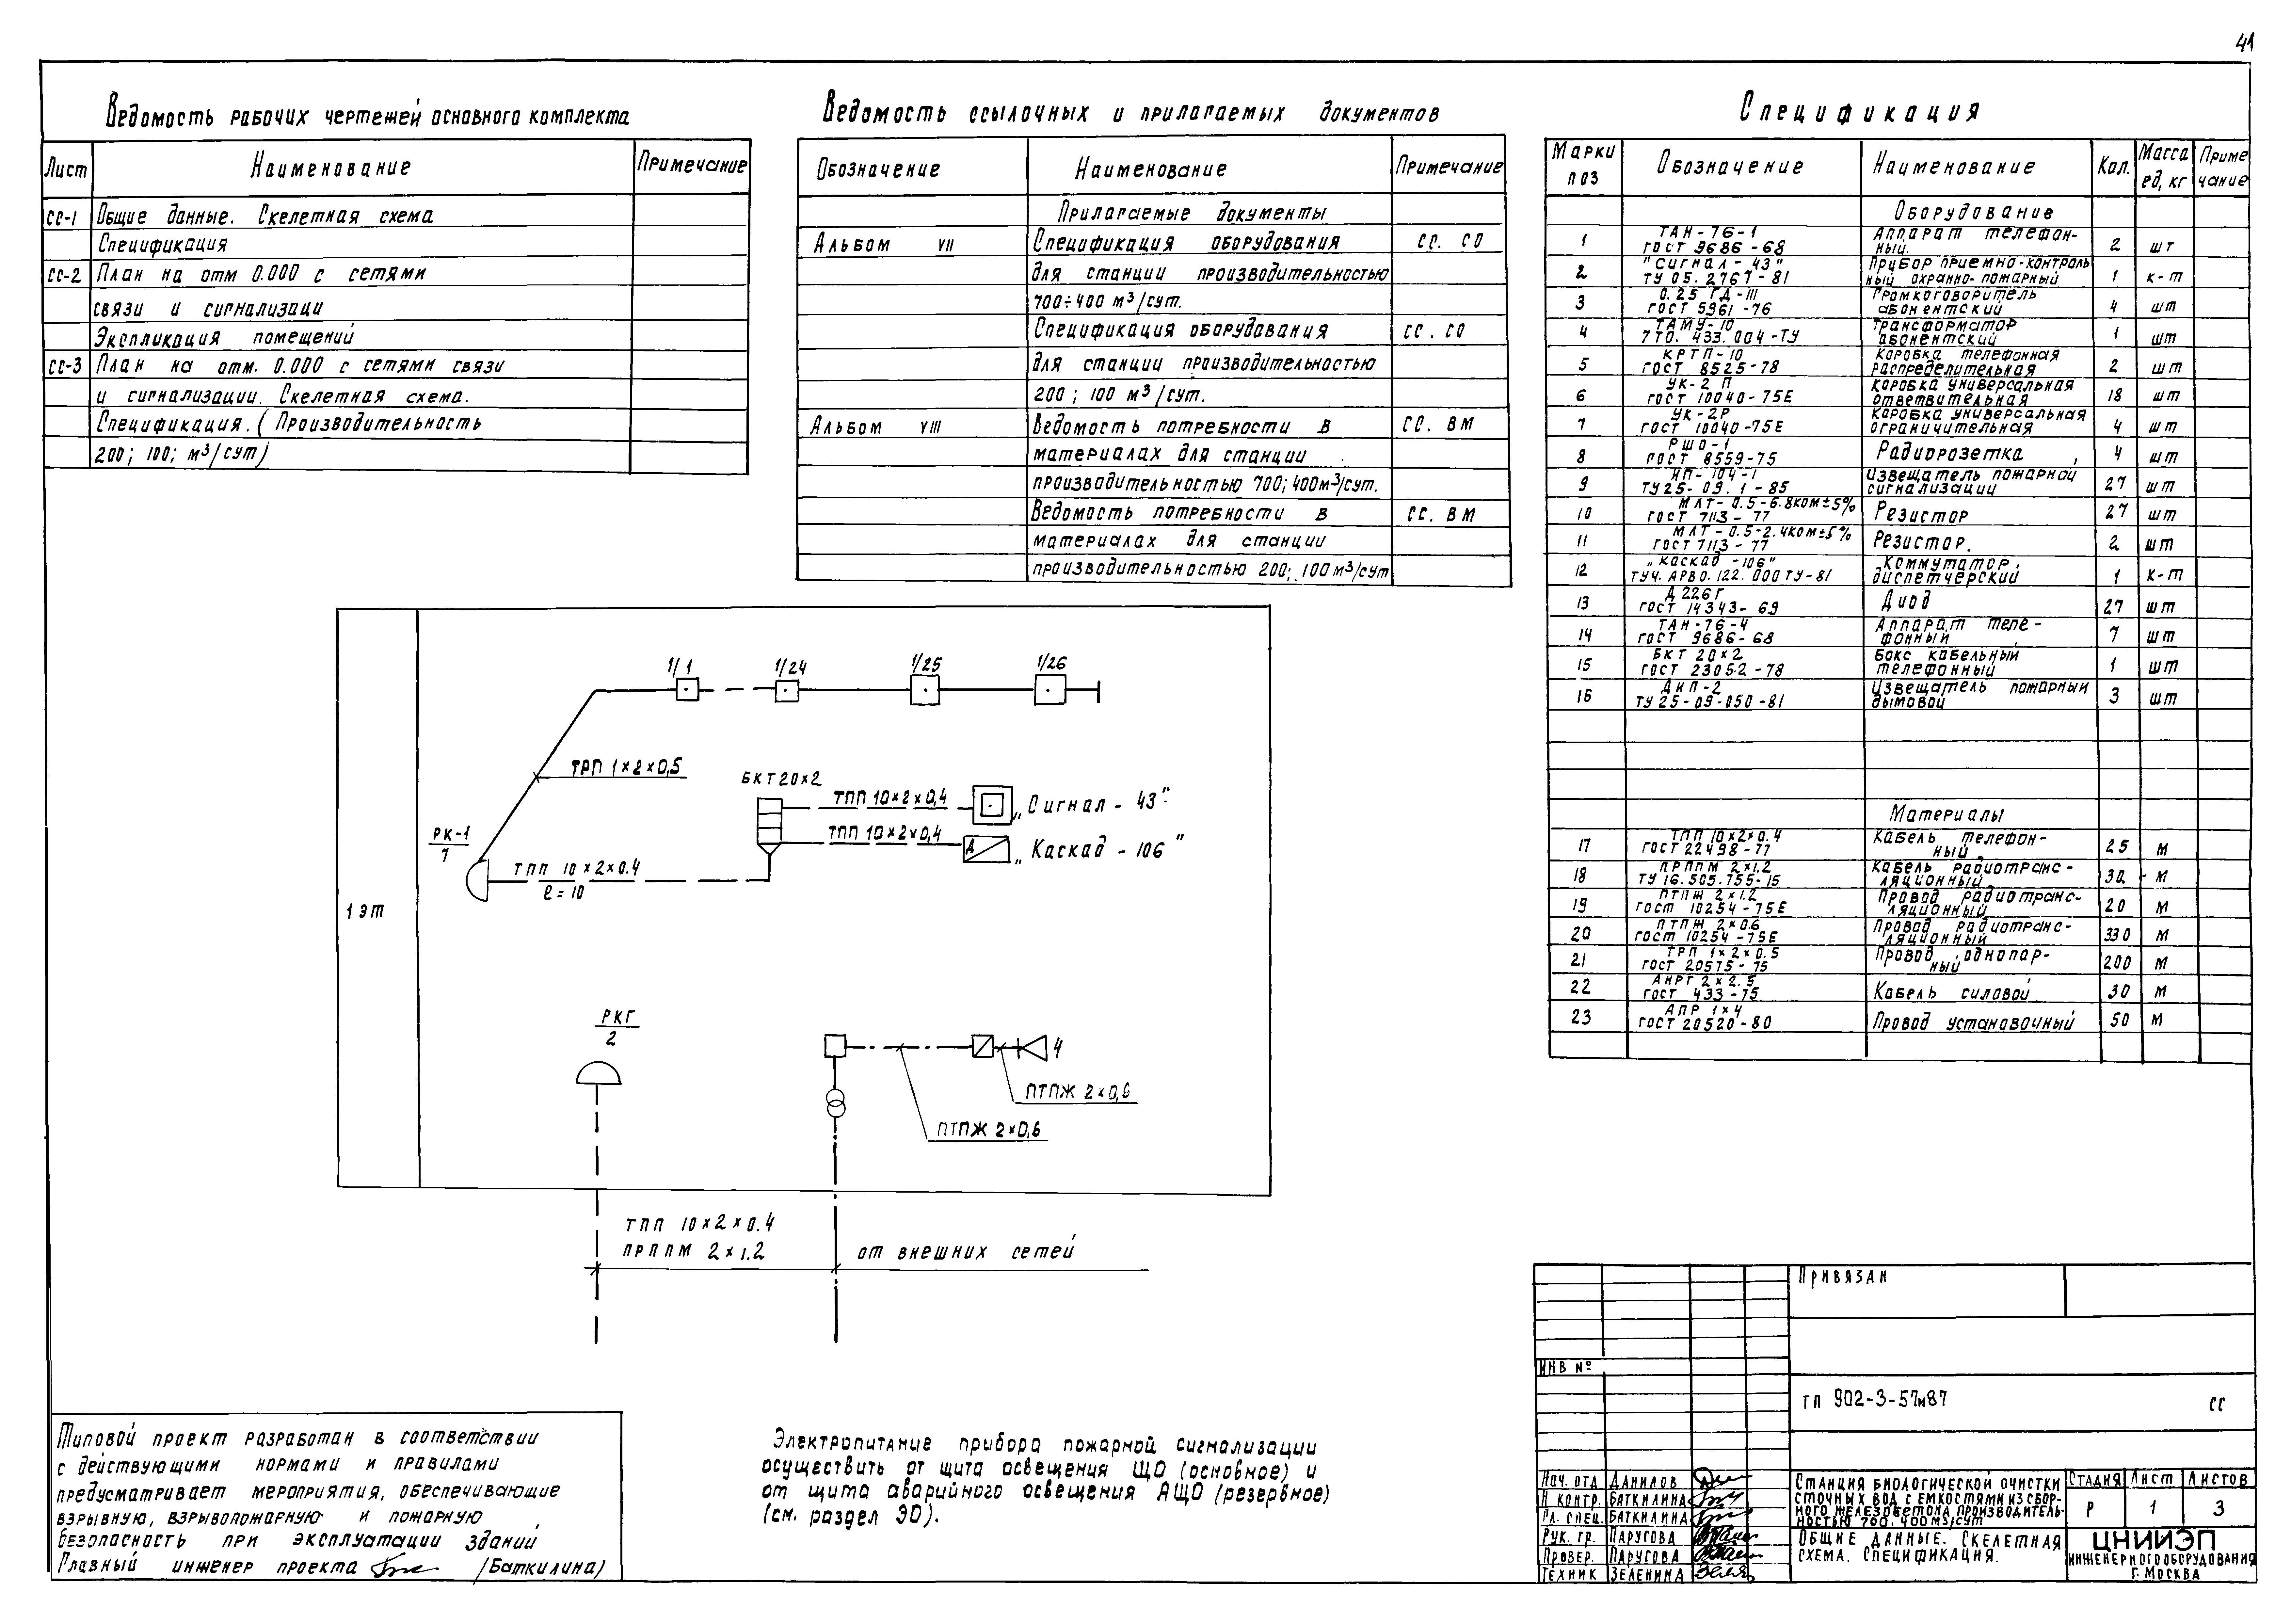 41
Ведомость рабочих чертежей основного комплекта
Лист Наименование Примечание
СС-1 Общие данные. Скелетная схема
Спецификация
СС-2 План на отм 0.000 с сетями
связи и сигнализаци
Экспликация помещений
СС-3 План на отм. 0.000 с сетями связи
и сигнализации. Скелетная схема.
Спецификация. (Производительность
200; 100; м³/сут)
Ведомость ссылочных и прилагаемых документов
Обозначение Наименование Примечание
Прилагаемые документы
Альбом VII Спецификация оборудования СС. СО
для станции производительностью
700÷400 м³/сут.
Спецификация оборудования СС. СО
для станции производительностью
200; 100 м³/сут.
Альбом VIII Ведомость потребности в СС. ВМ
материалах для станции
производительностью 700; 400м³/сут.
Ведомость потребности в СС. ВМ
материалах для станции
производительностью 200; 100м³/сут
Спецификация
Марки поз Обозначение Наименование Кол. Масса ед, кг Приме чание
Оборудование
1 ТАН-76-1 ГОСТ 9686-68 Аппарат телефон- ный. 2 шт
2 "Сигнал-43" ТУ 05.2767-81 Прибор приемно-контроль ный охранно-пожарный 1 к-т
3 0.25 ГД-III ГОСТ 5961-76 Громкоговоритель абонентский 4 шт
4 ТАМУ-10 7 ТО. 433. 004-ТУ Трансформатор абонентский 1 шт
5 КРТП-10 ГОСТ 8525-78 Коробка телефонная распределительная 2 шт
6 УК-2П ГОСТ 10040-75Е Коробка универсальная ответвительная 18 шт
7 УК-2Р ГОСТ 10040-75Е Коробка универсальная ограничительная 4 шт
8 РШО-1 ГОСТ 8559-75 Радиорозетка 4 шт
9 ИП-104-1 ТУ25-09.1-85 Извещатель пожарной сигнализации 27 шт
10 МЛТ-0.5-6.8ком±5% ГОСТ 7113-77 Резистор 27 шт
11 МЛТ-0.5-2.4ком±5% ГОСТ 7113-77 Резистор. 2 шт
12 „Каскад-106" ТУЧ. АРВО. 122. 000 ТУ-81 Коммутатор диспетчерский 1 к-т
13 Д226Г ГОСТ 14343-69 Диод 27 шт
14 ТАН-76-4 ГОСТ 9686-68 Аппарат теле- фонный 7 шт
15 БКТ 20×2 ГОСТ 23052-78 Бокс кабельный телефонный 1 шт
16 ДИП-2 ТУ 25-09-050-81 Извещатель пожарный дымовой 3 шт
Материалы
17 ТПП 10×2×0.4 ГОСТ 22498-77 Кабель телефон- ный 25 м
18 ПРППМ 2×1.2 ТУ 16.505.755-75 Кабель радиотранс- ляционный 30 м
19 ПТПЖ 2×1.2 ГОСТ 10254-75Е Провод радиотранс- ляционный 20 м
20 ПТПЖ 2×0.6 ГОСТ 10254-75Е Провод радиотранс- ляционный 330 м
21 ТРП 1×2×0.5 ГОСТ 20575-75 Провод однопар- ный 200 м
22 АНРГ 2×2.5 ГОСТ 433-75 Кабель силовой 30 м
23 АПР 1×4 ГОСТ 20520-80 Провод установочный 50 м
1/1 1/24 1/25 1/26
ТРП 1×2×0,5
БКТ20×2
ТПП 10×2×0,4 „Сигнал-43"
ТПП 10×2×0,4 Д „Каскад-106"
РК-1
7
ТПП 10×2×0.4
ℓ=10
1 эт
РКГ
2
4
ПТПЖ 2×0,6
ПТПЖ 2×0,6
ТПП 10×2×0.4
ПРППМ 2×1.2
от внешних сетей
Типовой проект разработан в соответствии
с действующими нормами и правилами
предусматривает мероприятия, обеспечивающие
взрывную, взрывопожарную и пожарную
безопасность при эксплуатации зданий
Главный инженер проекта /Баткилина)
Электропитание прибора пожарной сигнализации
осуществить от щита освещения ЩО (основное) и
от щита аварийного освещения АЩО (резервное)
(см. раздел ЭО).
Привязан
ИНВ №
ТП 902-3-57м87 СС
Нач. отд Данилов
Н контр. Баткилина
Гл. спец. Баткилина
Рук. гр. Парусова
Провер. Парусова
Техник Зеленина
Станция биологической очистки
сточных вод с емкостями из сбор-
ного железобетона производитель-
ностью 700, 400 м3/сут
Стадия Лист Листов
Р 1 3
Общие данные. Скелетная
схема. Спецификация.
ЦНИИЭП
ИНЖЕНЕРНОГО ОБОРУДОВАНИЯ
Г. МОСКВА